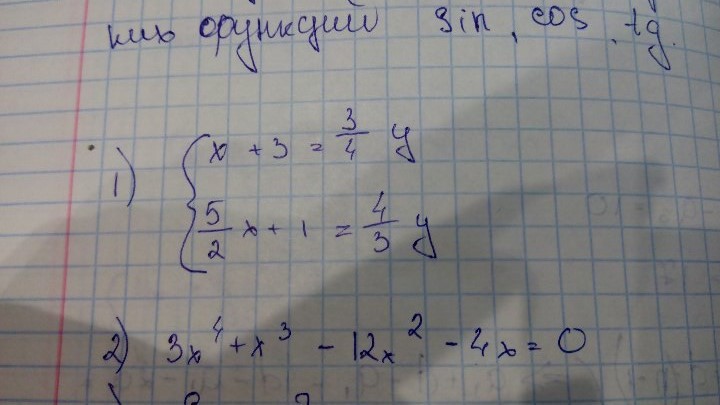 функций sin, cos, tg.
1) { x + 3 = 3/4 y
5/2 x + 1 = 4/3 y
2) 3x⁴ + x³ - 12x² - 4x = 0